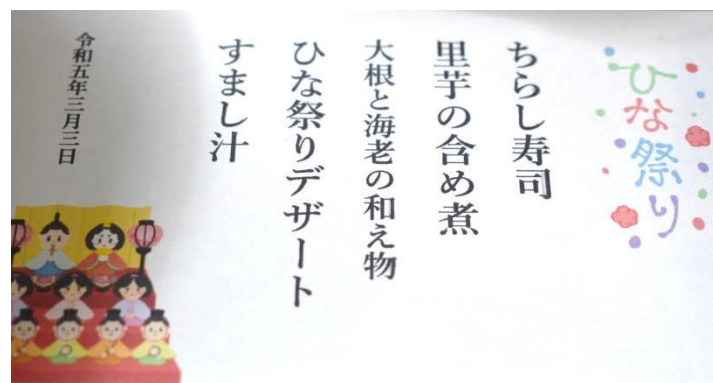 ひな祭り
ちらし寿司
里芋の含め煮
大根と海老の和え物
ひな祭りデザート
すまし汁
令和五年三月三日